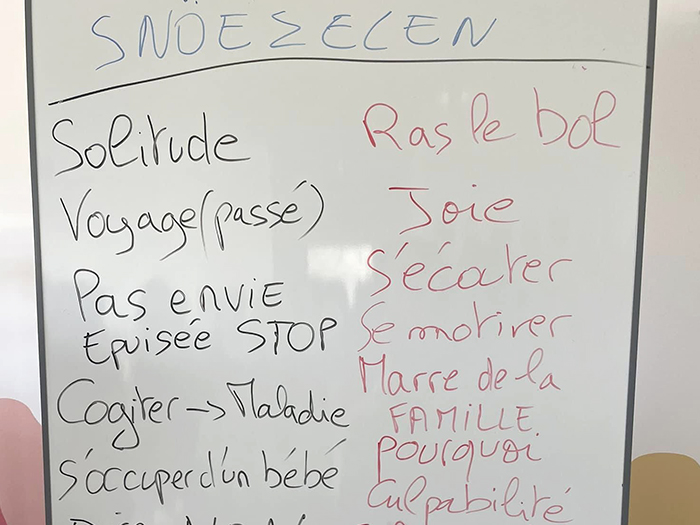 SNÖEZELEN
Solitude
Voyage (passé)
Pas envie
Epuisée STOP
Cogiter -> Maladie
s'occuper d'un bébé
Ras le bol
Joie
S'écater
Se motiver
Marre de la
FAMILLE
pourquoi
Culpabilité